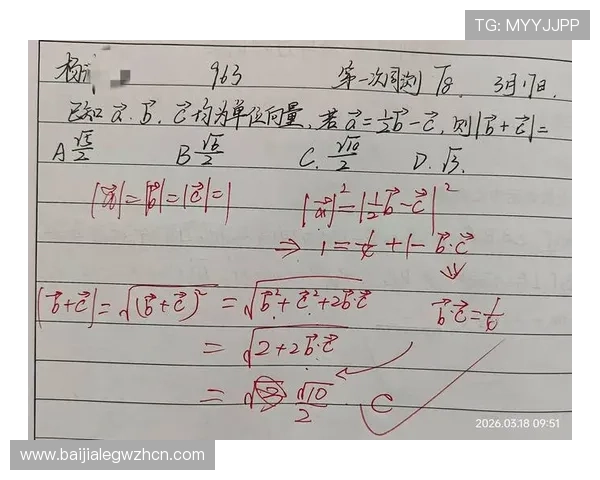 TG: MYYJJPP
杨 963 第一次周测 T8. 3月17日.
已知 a⃗, b⃗, c⃗ 均为单位向量, 若 a⃗=½b⃗-c⃗, 则|b⃗+c⃗|=
A √5/2 B √6/2 C. √10/2 D. √3.
|a⃗|=|b⃗|=|c⃗|=1 |a⃗|²=|½b⃗-c⃗|²
⇒ 1=¼+1-b⃗·c⃗
|b⃗+c⃗|=√(b⃗+c⃗)² =√b⃗²+c⃗²+2b⃗·c⃗ b⃗·c⃗=¼
=√2+2b⃗·c⃗
= √10/2 C
2026.03.18 09:51
www.baijialegwzhcn.com